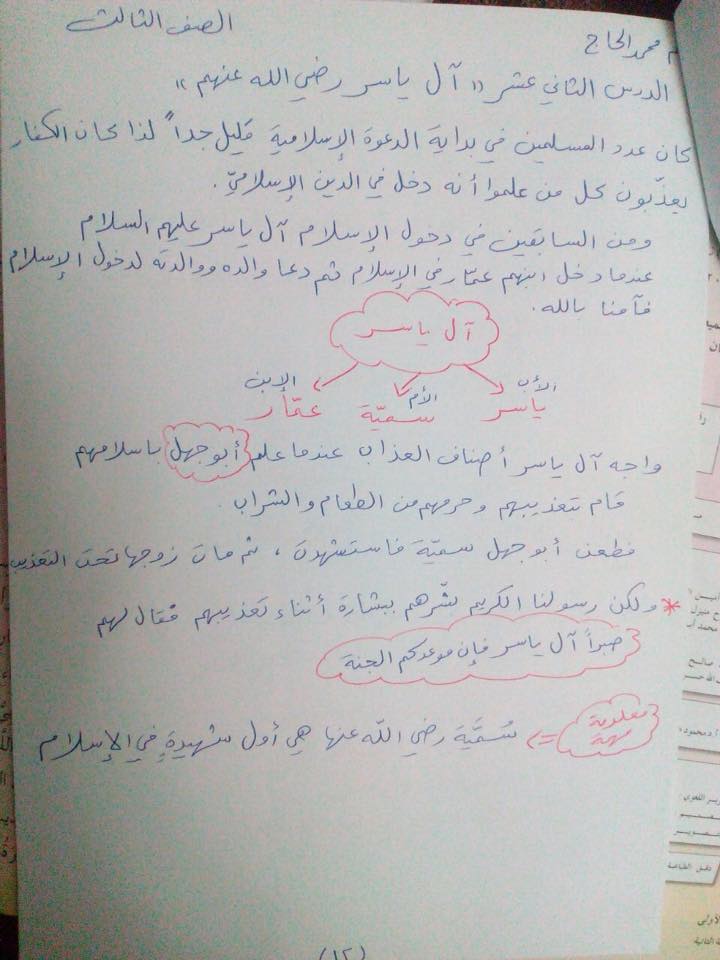 الصف الثالث
م محمد الحاج
الدرس الثاني عشر "آل ياسر رضي الله عنهم"
كان عدد المسلمين في بداية الدعوة الإسلامية قليل جداً لذا كان الكفار
يعذّبون كل من علموا أنه دخل في الدين الإسلاميّ.
ومن السابقين في دخول الإسلام آل ياسر عليهم السلام
عندما دخل ابنهم عمّار في الإسلام ثم دعا والده ووالدته لدخول الإسلام
فآمنا بالله.
آل ياسر
الأب الأم الإبن
ياسر سميّة عمّار
واجه آل ياسر أصناف العذاب عندما علم أبو جهل باسلامهم
قام بتعذيبهم وحرمهم من الطعام والشراب.
فطعن أبو جهل سميّة فاستشهدت، ثم مات زوجها تحت التعذيب
* ولكن رسولنا الكريم بشّرهم ببشارة أثناء تعذيبهم فقال لهم
صبراً آل ياسر فإن موعدكم الجنة
معلومة
مهمة
سُميَّة رضي الله عنها هي أول شهيدةٍ في الإسلام
(١٢)